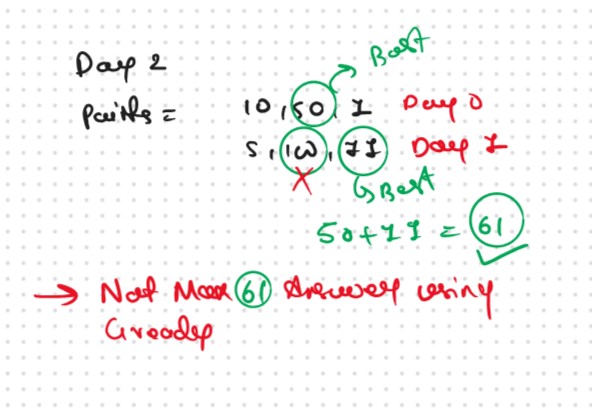 Best
Day 2
Points = 10, 50, 1 Day 0
5, 100, 11 Day 1
Best
50 + 11 = 61
→ Not Max 61 Answer using
Greedy